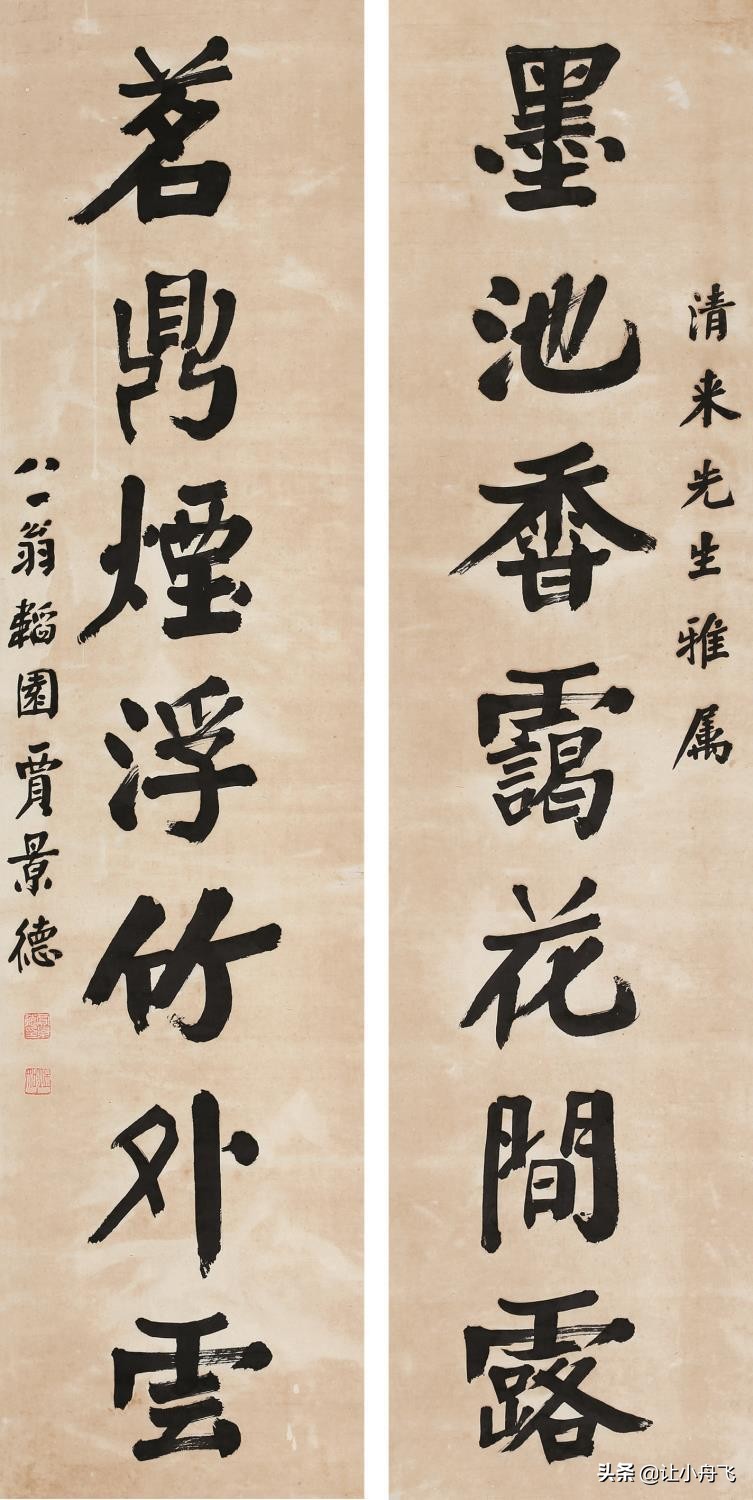 清来先生雅属
墨池香靄花間露
茗鼎煙浮竹外雲
八一翁韜園賈景德
头条 @让小舟飞